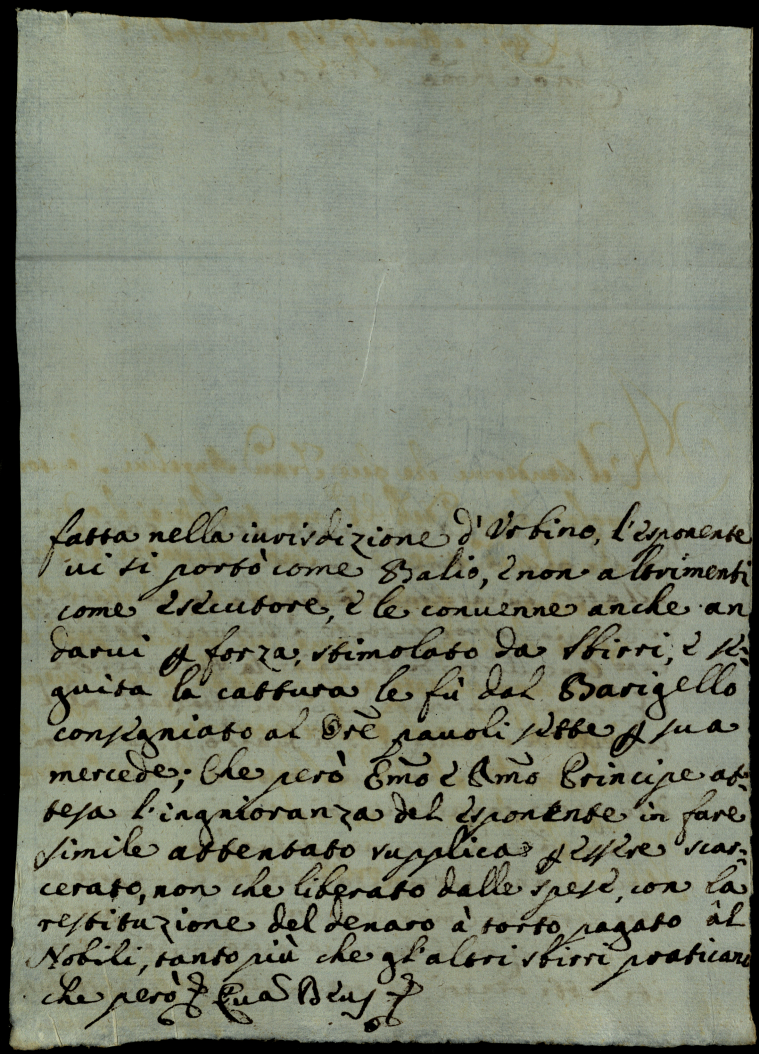 fatta nella iurisdizione d'Urbino, l'esponente
ui si portò come Balio, e non altrimenti
come esecutore, e le conuenne anche an
darui p forza, stimolato da sbirri, e se-
guita la cattura le fù dal Barigello
consegniato al Ore pauoli sette p sua
mercede; Che però Emo e Rmo Principe at-
tesa l'ingnioranza del esponente in fare
simile attentato supplica p essere scar-
cerato, non che liberato dalle spese, con la
restituzione del denaro à torto pagato al
Nobili, tanto più che gl'altri sbirri praticano
che però Qua Deus